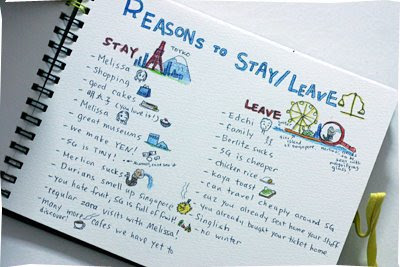 REASONS TO STAY/LEAVE
STAY
TOKYO
- Melissa
- Shopping
- good cakes
(You love it!)
- Melissa
- great museums
- we make YEN!
- SG is TINY!
- Merlion sucks
- Durians smell up Singapore
- You hate fruit. SG is full of fruit
- regular zara visits with Melissa!
- many more cafes we have yet to
discover!
LEAVE
- Edchi
- family
- Berlitz sucks
- SG is cheaper
- chicken rice
- kaya toast
- can travel cheaply around SG
- cuz you already sent home your stuff
- you already bought your ticket home
- Singlish
- no winter